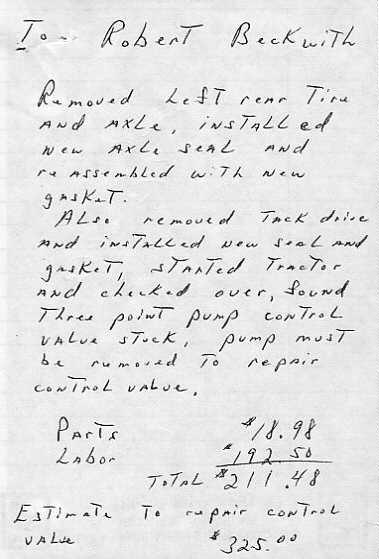 To Robert Beckwith
Removed Left rear Tire
AND AXLe, iNSTALLed
New AXLe SeAL AND
re ASSembled wiTh New
gASKeT.
ALSo removed TAck drive
AND iNSTALLed New SeAL AND
gASKeT, STArTed TrAcTor
AND checked over, Found
Three poiNT pump coNTroL
VALve STuck, pump muST
be removed To repAir
coNTroL VALve.
PArTs $18.98
LAbor $192.50
ToTAL $211.48
ESTimATe To repAir coNTroL
VALve $325.00